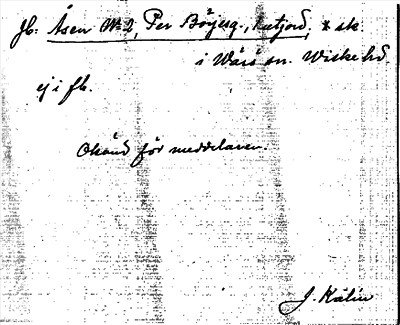 Jb. Åsen No 2, Per Börjesg., utjord, * sk.
i Wärö sn. Wiske hd
ej i jb.
Okänd för meddelaren.
J. Kalén